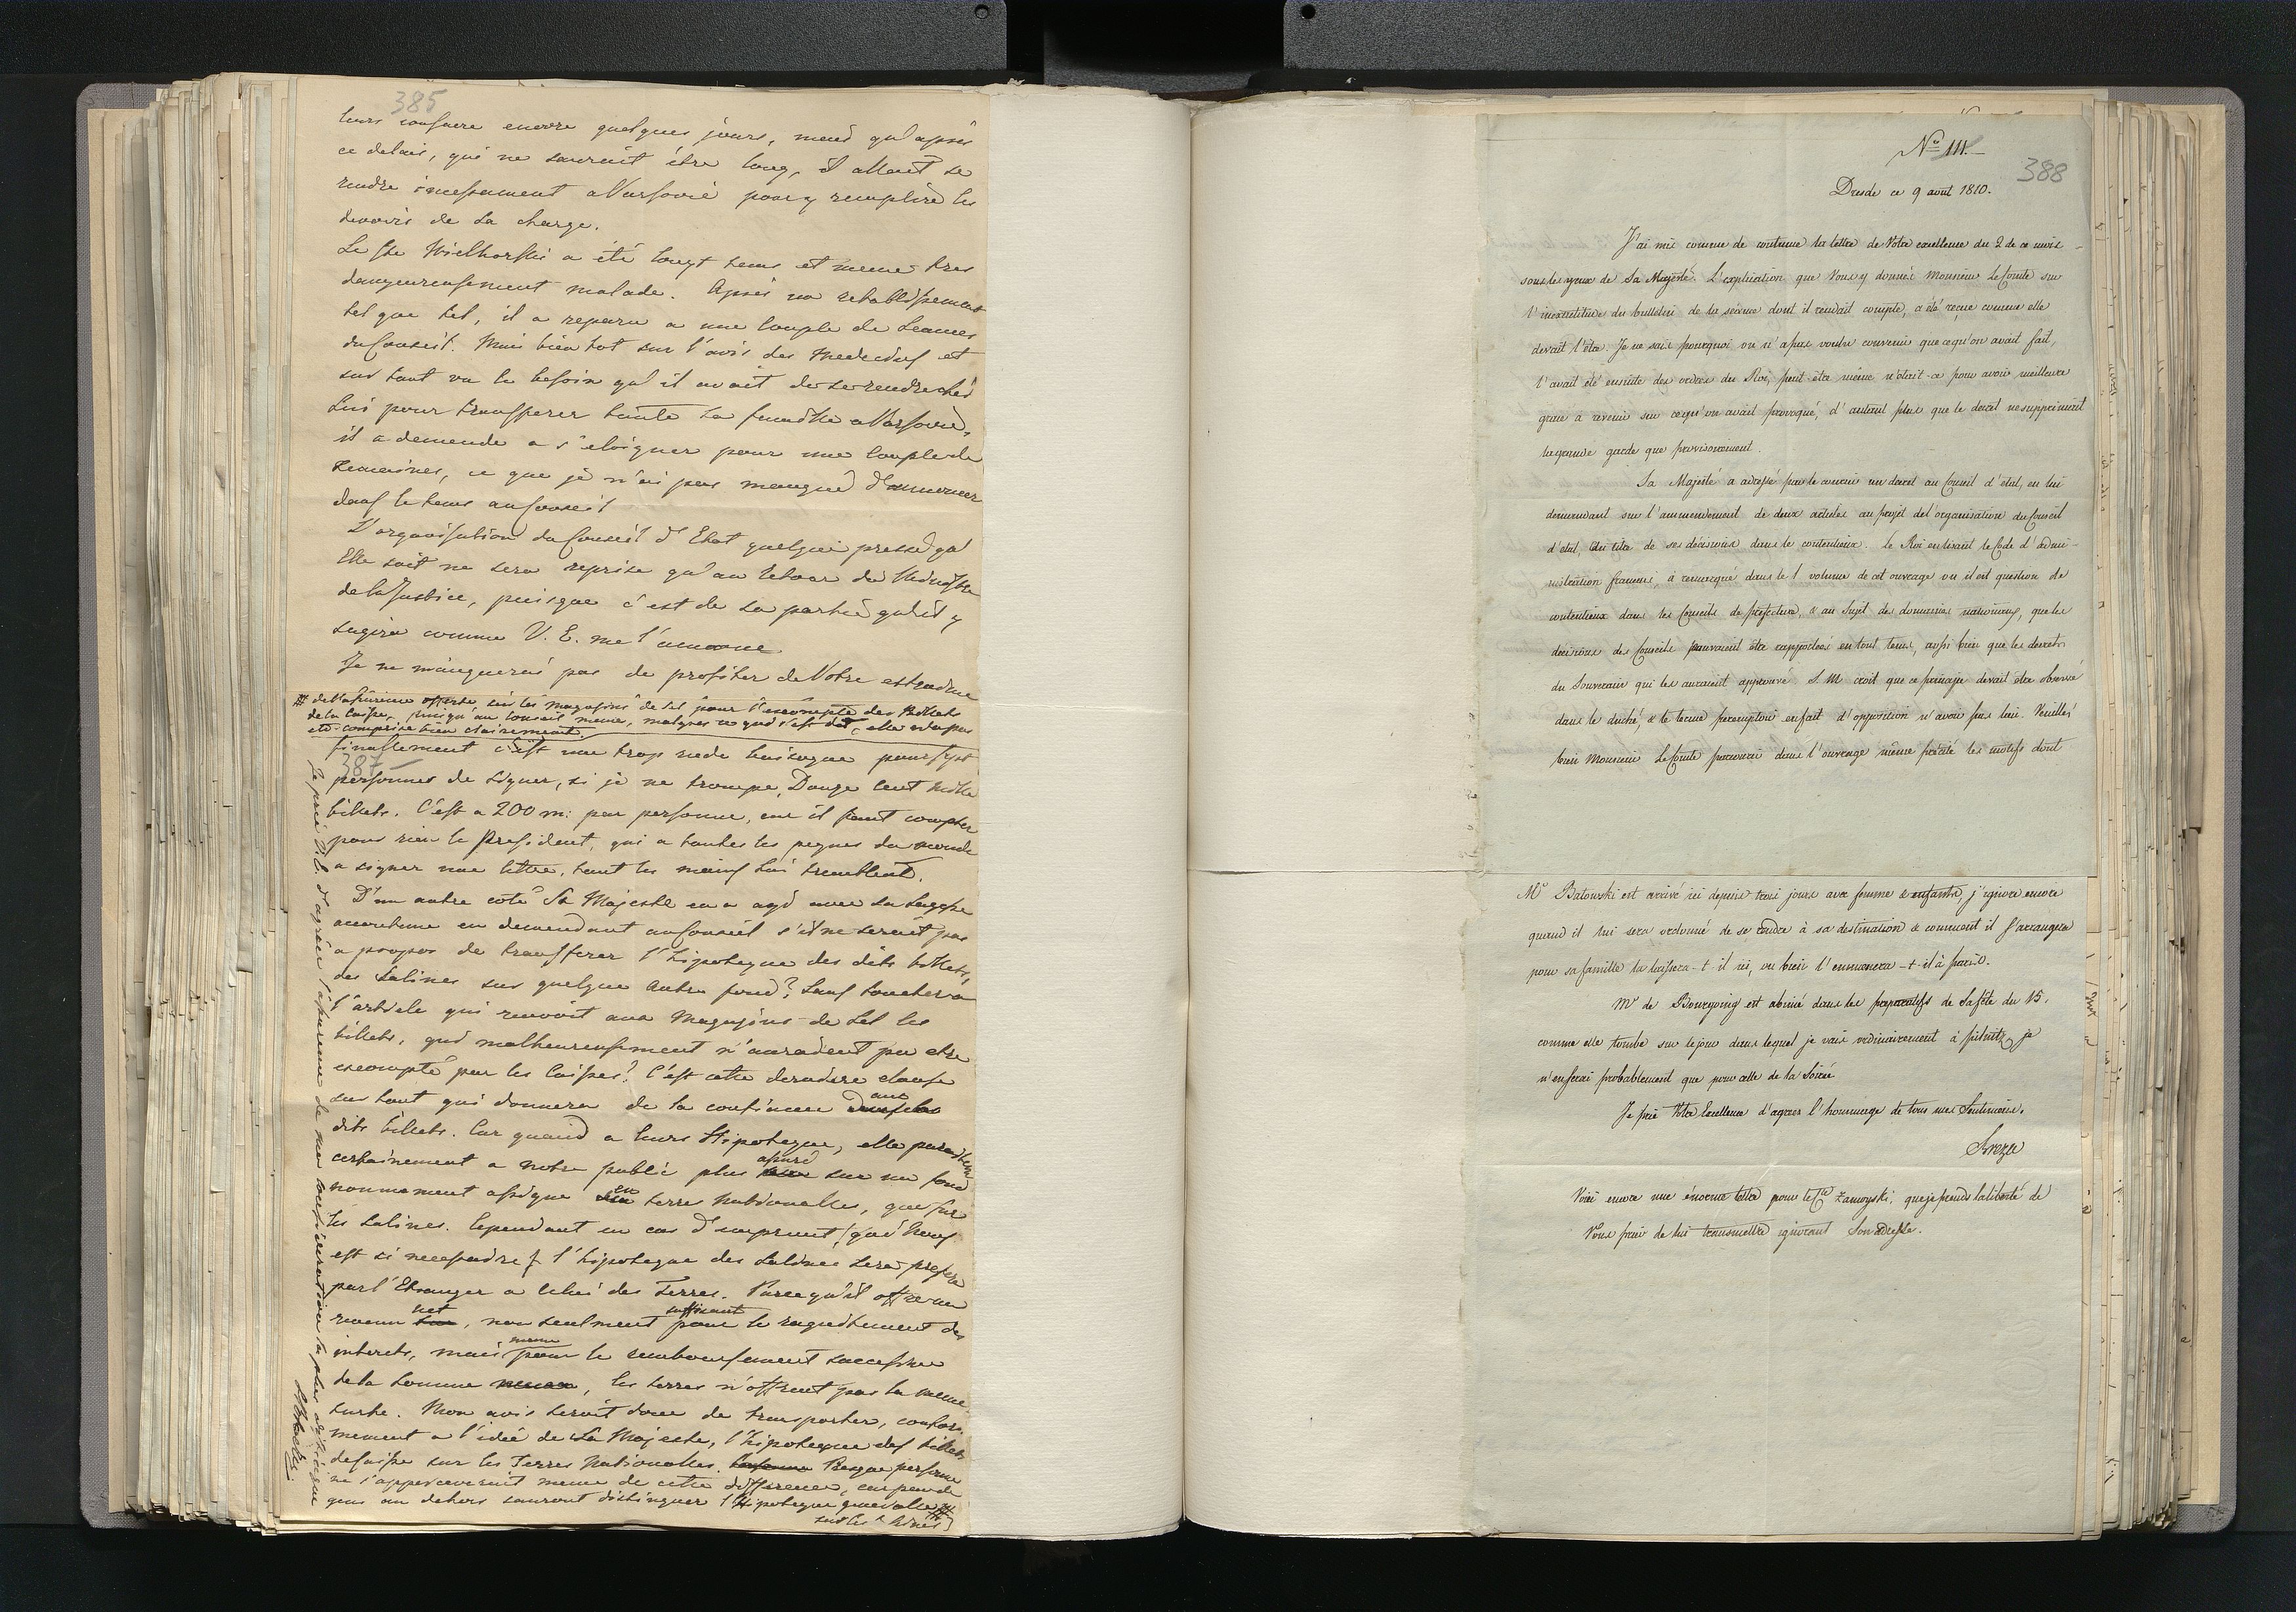 385
leurs consacre encore quelques jours, mais qu'après
ce delais, qui ne sauroit être long, il allait se
rendre incessament a Varsovie pour y remplire les
devoirs de sa charge.
Le Cte Wielhorski a été longt tems et meme tres
dangeureusement malade. Après un retablissement
tel que tel, il a reparu a une couple de Seances
du Conseil. Mais bien tot sur l'avis des Medecins et
sur tout vu le besoin qu'il avait de se rendre chés
lui pour transferer toute sa famille a Varsovie,
il a demendé a s'eloigner pour une couple de
semaines, ce que je n'ai pas manqué d'annoncer
dans le tems au Conseil
L'organisation du Conseil d'Etat quelque pressé qu'
Elle soit ne sera reprise qu'au retour du Ministre
de la Justice, puisque c'est de sa partie qu'il y
sagira comme V. E. me l'annonce.
Je ne manquerai pas de profiter de Votre
# de la sur les magasins de Sel pour l'escompte des Billets
de la Caisse, puisqu'au Conseil meme, malgres ce qui s'est dit, elle n'a pas
eté comprise bien clairement.
finallement c'est une trop rude besogne pour sept
387
personnes de signer, si je ne trompe, Douze cent mille
billets. C'est a 200 m: par personne, car il faut compter
pour rien le President, qui a toutes les peines du monde
a signer une lettre, tant les mains lui tremblent.
D'un autre coté Sa Majesté en a agi avec sa sagesse
accoutumé en demendant au Conseil s'il ne seroit pas
a propos de transferer l'hipoteque des dits billets,
des Salines sur quelque autre fond? Sauf toucher a
l'article qui renvoit aux Magazins de Sel les
billets, qui malheureusement n'auraient pu etre
escompté par les Caisses? C'est cette derniere clause
sur tout qui donnera de la confiance aux
dits billets. Car quand a leurs Hipoteque, elle paraitera
certainement a notre public plus assuré sur un fond
nommement assigné en terres Nationalles, que sur
les Salines. Cependant en cas d'emprunt (qui nous
est si necessaire) l'hipoteque des Salines sera preferé
par l'Etranger a celui des Terres. Parce qu'il offre un
revenu net, non seulment suffisant pour le raquitement des
interets, mais meme pour le remboursement successive
de la somme, les terres n'offrent pas la meme
surté. Mon avis seroit donc de transporter, confor-
mement a l'idée de Sa Majesté, l'hipoteque des billets
de caisse sur les Terres Nationalles. Presque personne
ne s'appercevrait meme de cette difference, car peu de
gens au dehors sauront distinguer l'Hipoteque #
Je prie V. E. d'agréer l'assurence de ma consideration la plus distinguée
No 111.
388
Dresde ce 9 août 1810.
J'ai mis comme de coutume la lettre de Votre excellence du 2 de ce mois
sous les yeux de Sa Majesté. L'explication que Vous y donnés Monsieur Le Comte sur
l'inexactitude du bulletin de la séance dont il rendait compte, a été reçue comme elle
devait l'être. Je ne sais pourquoi on n'a pas voulu convenir que ce qu'on avait fait,
l'avait été ensuite des ordres du Roi, peut-être même n'etoit-ce pour avoir meilleure
grace à revenir sur ce qu'on avait provoqué, d'autant plus que le decret ne supprimoit
la grande garde que provisoirement.
Sa Majesté a adressé par le courier un decret au Conseil d'état, en lui
demandant sur l'ammendement de deux articles au projet de l'organisation du Conseil
d'etat, du titre de ses décisions dans le contentieux. Le Roi en lisant le Code d'admi-
nistration français, a remarqué dans le 1 volume de cet ouvrage ou il est question de
contentieux dans les Conseils de préfecture, & au Sujet des domaines nationaux, que les
décisions des Conseils pouvaient être rapportées en tout tems, aussi bien que les decrets
du Souverain qui les auroient approuvé. S. M. croit que ce principe devait être observé
dans le duché, & le terme peremptoir en fait d'opposition n'avoir pas lieu. Veuillés
bien Monsieur Le Comte parcourir dans l'ouvrage même précité les motifs dont
Mr Batowski est arrivé ici depuis trois jours avec femme & enfants, j'ignore encore
quand il lui sera ordonné de se rendre à sa destination & comment il s'arrangera
pour sa famille la laissera-t-il ici, ou bien l'emmenera-t-il à paris.
Mr de Bourgoing est abimé dans les preparatifs de sa fête du 15.
comme elle tombe sur le jour dans lequel je vais ordinairement à pilnitz, je
n'en serai probablement que pour celle de la Soirée
Je prie Votre Excellence d'agréer l'hommage de tous mes Sentimens.
Breza
Voici encore une énorme lettre pour le Cte Zamoyski, que je prends la liberté de
Vous prier de lui transmettre ignorant Son adresse.